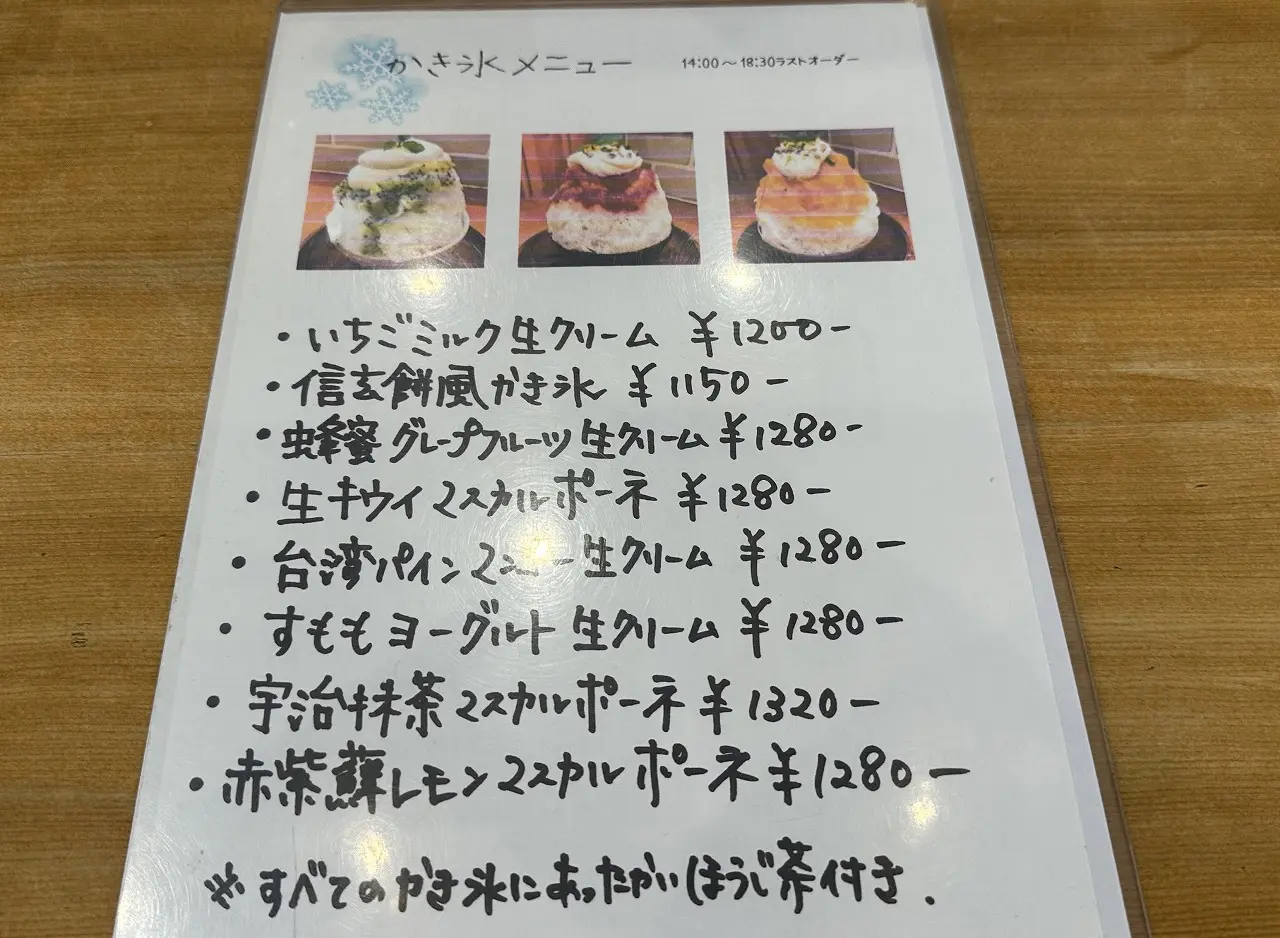 かき氷メニュー 14:00〜18:30ラストオーダー
・いちごミルク生クリーム ¥1200-
・信玄餅風かき氷 ¥1150-
・蜂蜜グレープフルーツ生クリーム ¥1280-
・生キウイマスカルポーネ ¥1280-
・台湾パイン生クリーム ¥1280-
・すももヨーグルト生クリーム ¥1280-
・宇治抹茶マスカルポーネ ¥1320-
・赤紫蘇レモンマスカルポーネ ¥1280-
※すべてのかき氷にあったかいほうじ茶付き.